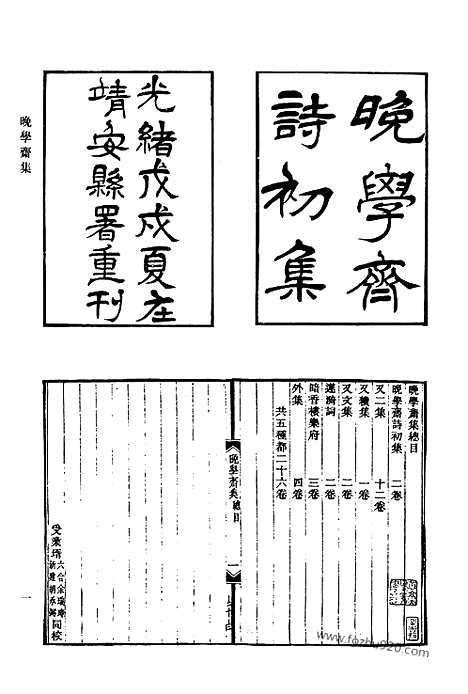 晚學齋
詩初集
光緒戊戌夏在
靖安縣署重刊
晚學齋集
晚學齋集總目
晚學齋詩初集 二卷
又二集 十二卷
又續集 一卷
又文集 二卷
詞 二卷
暗香樓樂府 三卷
外集 四卷
共五種都二十六卷
晚學齋集總目
一
受業壻
同校
一
https://www.fozhu920.com